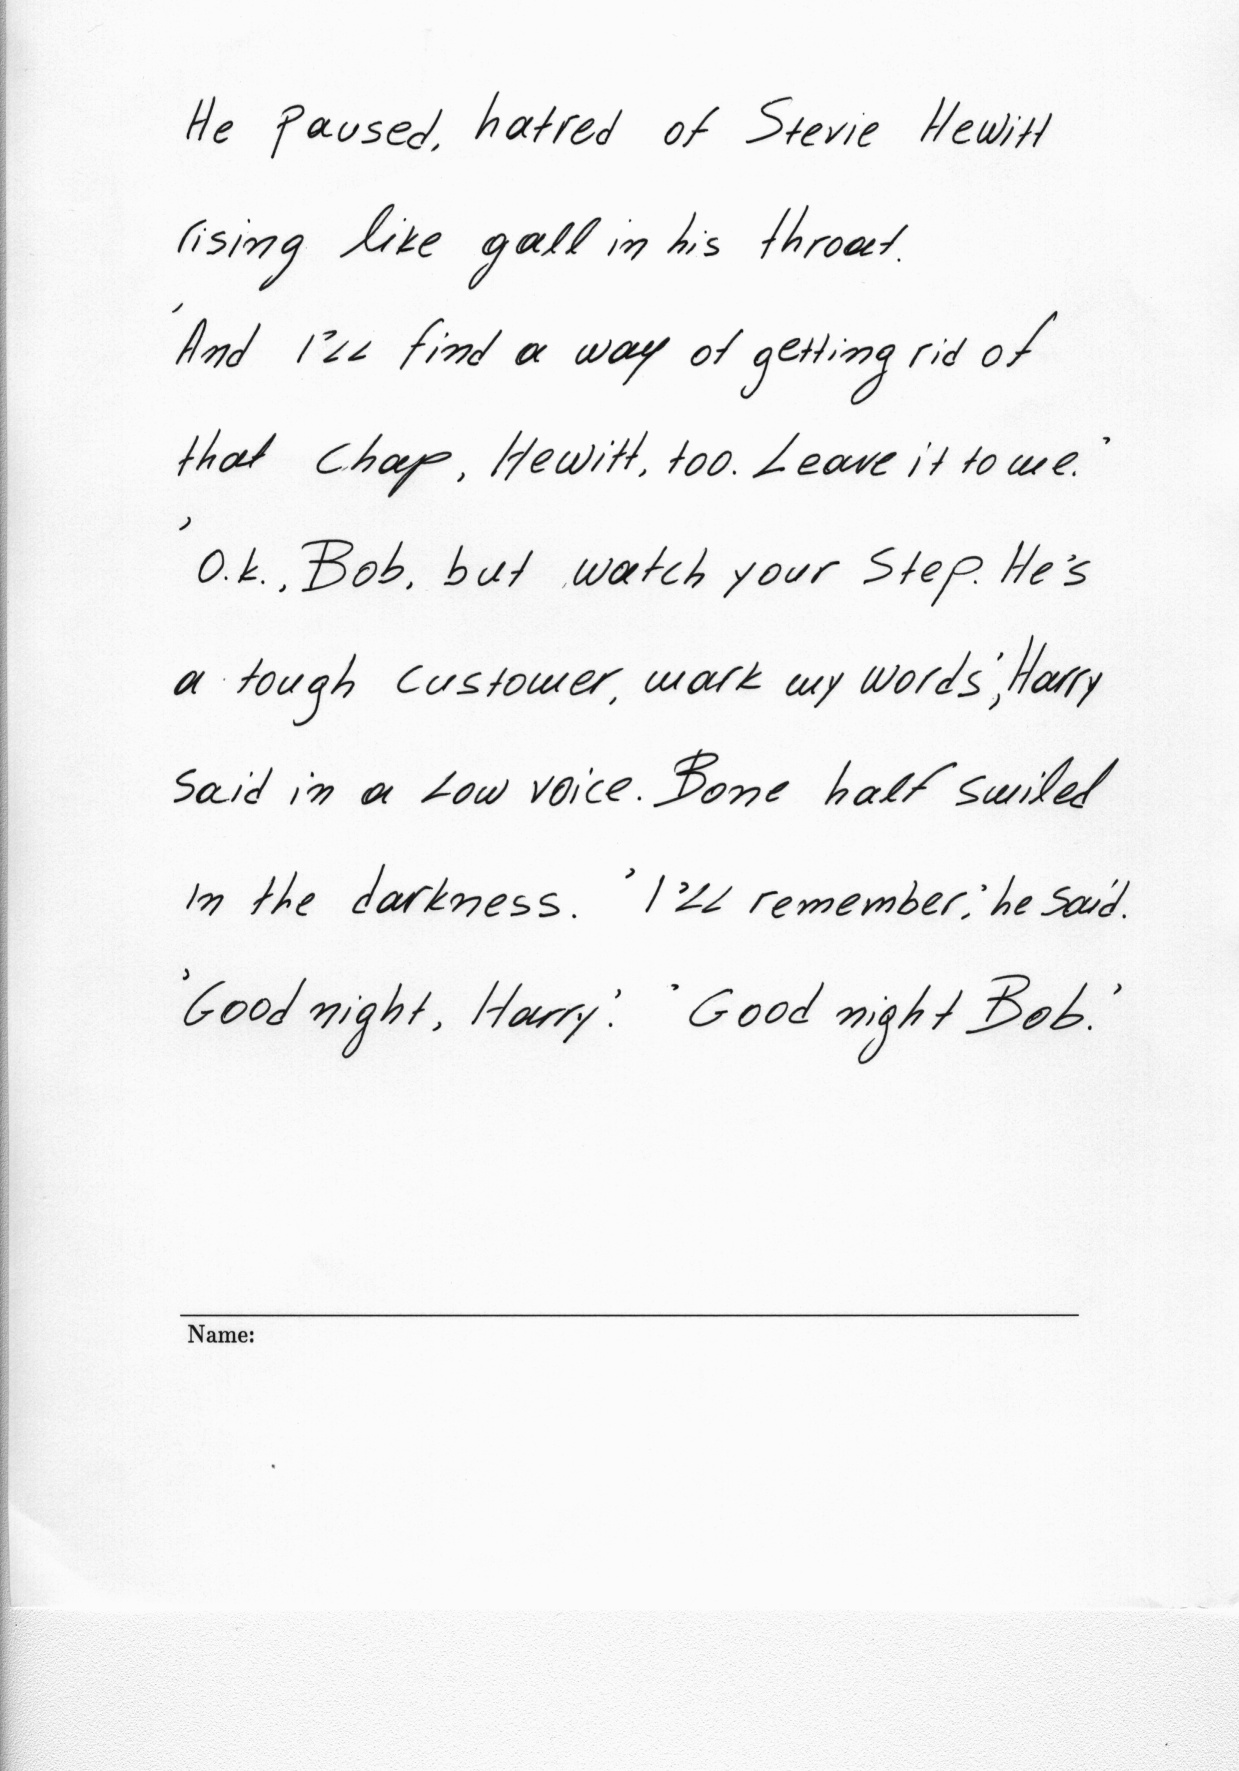 He paused, hatred of Stevie Hewitt
rising like gall in his throat.
'And I'll find a way of getting rid of
that chap, Hewitt, too. Leave it to me.'
'O.k., Bob, but watch your step. He's
a tough customer, mark my words', Harry
said in a low voice. Bone half smiled
in the darkness. 'I'll remember,' he said.
'Good night, Harry.' 'Good night Bob.'
Name: